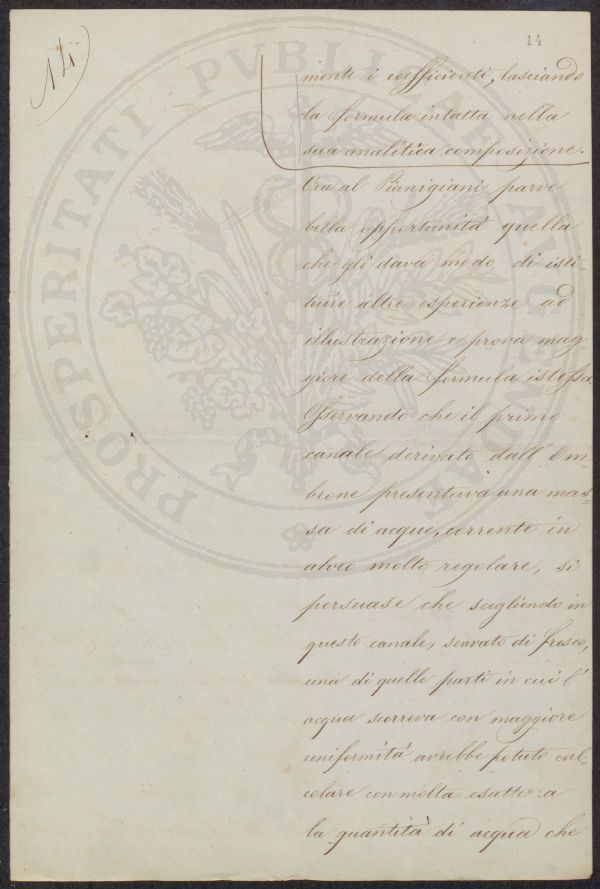 14
14
mente i coefficienti, lasciando
la formula intatta nella
sua analitica composizione.
Ora al Pianigiani parve
bella opportunità quella
che gli dava modo di isti-
tuire altre esperienze ad
illustrazione e prova mag
giore della formula istessa.
Osservando che il primo
canale derivato dall' Om-
brone presentava una mas-
sa di acque, corrente in
alveo molto regolare, si
persuase che scegliendo in
questo canale, scavato di fresco,
una di quelle parti in cui l'
acqua scorreva con maggiore
uniformità avrebbe potuto cal-
colare con molta esattezza
la quantità di acqua che
PROSPERITATI PVBLICAE AVGENDAE